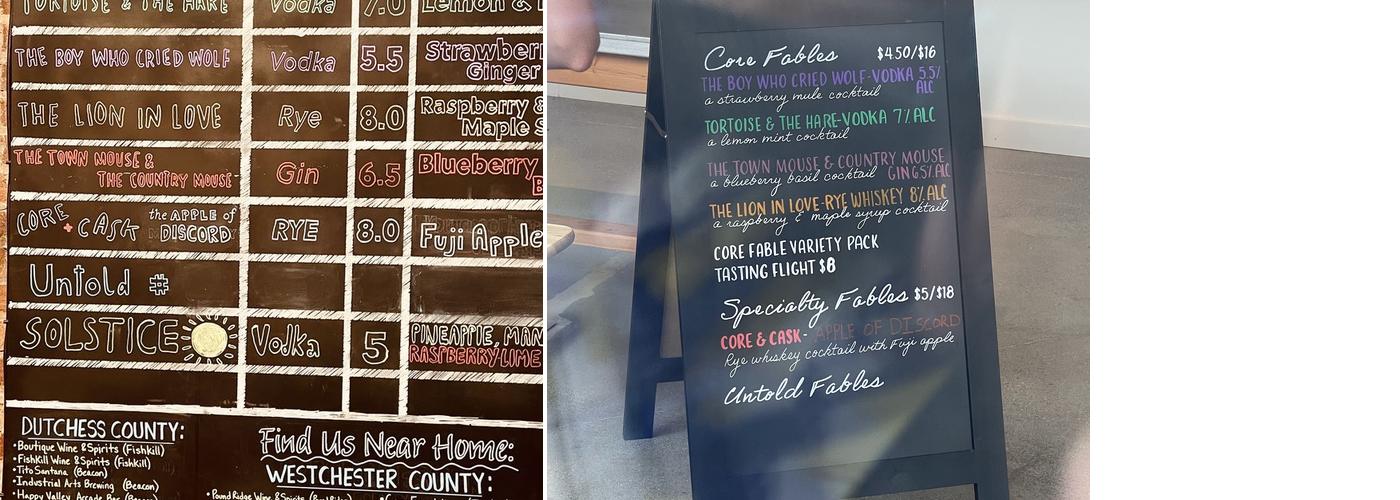 TORTOISE & THE HARE Vodka 7.0 Lemon &
THE BOY WHO CRIED WOLF Vodka 5.5 Strawber
Ginger
THE LION IN LOVE Rye 8.0 Raspberry &
Maple S
THE TOWN MOUSE &
THE COUNTRY MOUSE Gin 6.5 Blueberry
B
CORE + CASK the APPLE of
DISCORD RYE 8.0 Fuji Apple
Untold #
SOLSTICE Vodka 5 PINEAPPLE, MAN
RASPBERRY LIME
DUTCHESS COUNTY:
•Boutique Wine & Spirits (Fishkill)
•Fishkill Wine & Spirits (Fishkill)
•Tito Santana (Beacon)
•Industrial Arts Brewing (Beacon)
•Happy Valley Arcade Bar (Beacon)
Find Us Near Home:
WESTCHESTER COUNTY:
•Pound Ridge Wine & Spirits
Core Fables $4.50/$16
THE BOY WHO CRIED WOLF-VODKA 5.5%
ALC
a strawberry mule cocktail
TORTOISE & THE HARE-VODKA 7% ALC
a lemon mint cocktail
THE TOWN MOUSE & COUNTRY MOUSE
GIN 6.5% ALC
a blueberry basil cocktail
THE LION IN LOVE-RYE WHISKEY 8% ALC
a raspberry & maple syrup cocktail
CORE FABLE VARIETY PACK
TASTING FLIGHT $8
Specialty Fables $5/$18
CORE & CASK- APPLE OF DISCORD
Rye whiskey cocktail with Fuji apple
Untold Fables